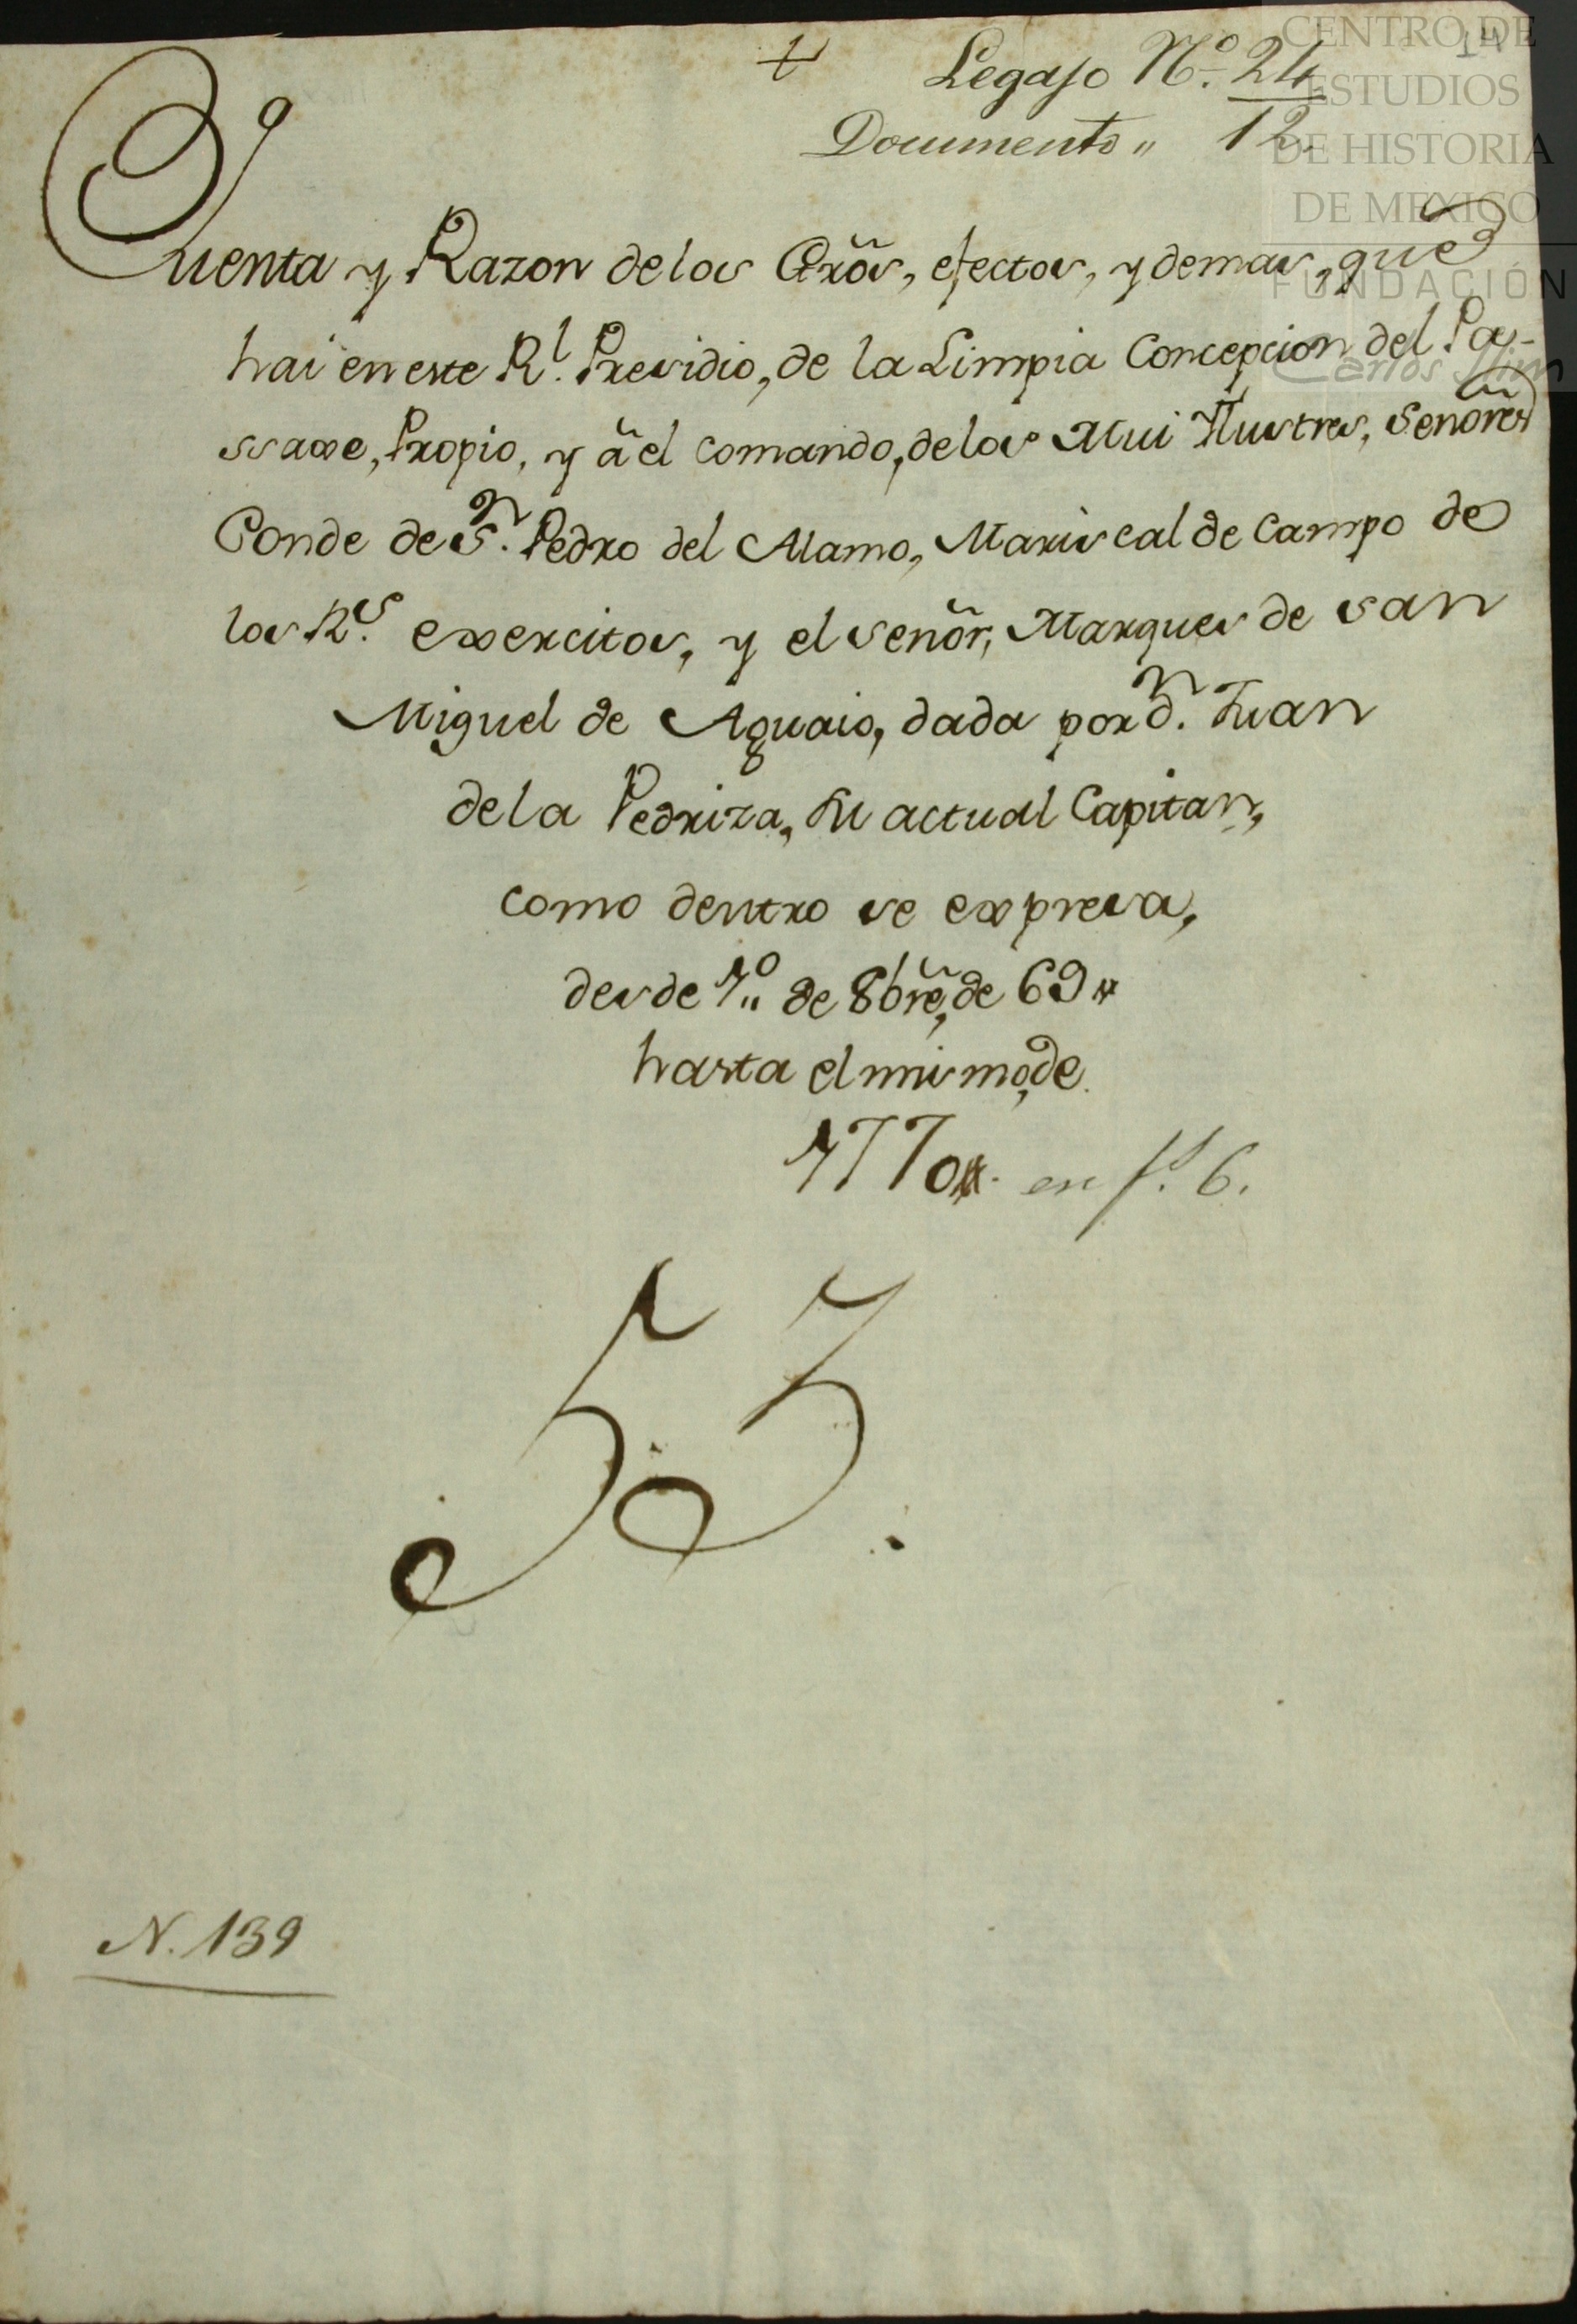 Legajo Nº. 24
Documento " 12.
14
Cuenta y Razon de los Gẽros, efectos, y demas, que
hai en este Rl. Presidio, de la Limpia Concepcion del Pa-
ssaxe, Propio, y ã el comando, de los Mui Ylustres, Señores
Conde de Sn. Pedro del Alamo, Mariscal de Campo de
los Rs. exercitos, y el señor, Marques de san
Miguel de Aguaio, dada por Dn. Juan
de la Pedriza, su actual Capitan,
como dentro se expresa,
desde 1º. de 8bre, de 69
hasta el mismo, de
1770. en fs. 6.
N. 139
CENTRO DE
ESTUDIOS
DE HISTORIA
DE MEXICO
FUNDACIÓN
Carlos Slim